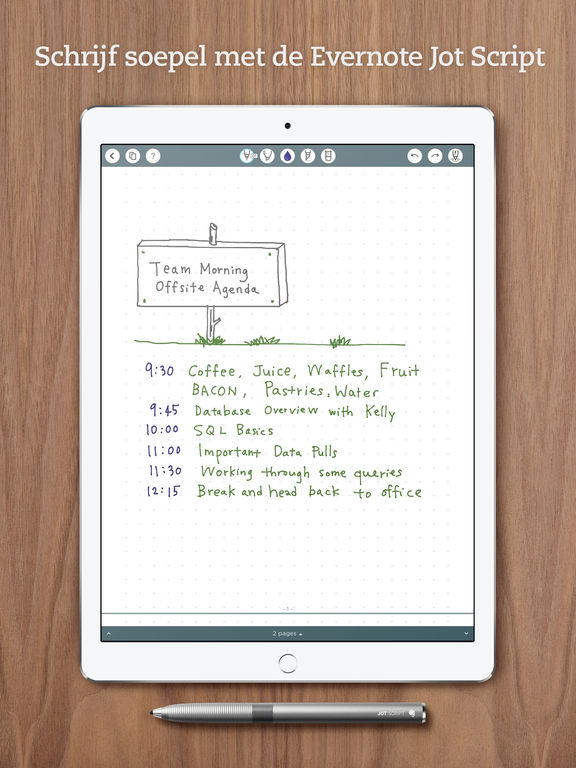 Schrijf soepel met de Evernote Jot Script
?
Team Morning
Offsite Agenda
9:30 Coffee, Juice, Waffles, Fruit
BACON, Pastries, Water
9:45 Database Overview with Kelly
10:00 SQL Basics
11:00 Important Data Pulls
11:30 Working through some queries
12:15 Break and head back to office
- 1 -
2 pages
JOT SCRIPT